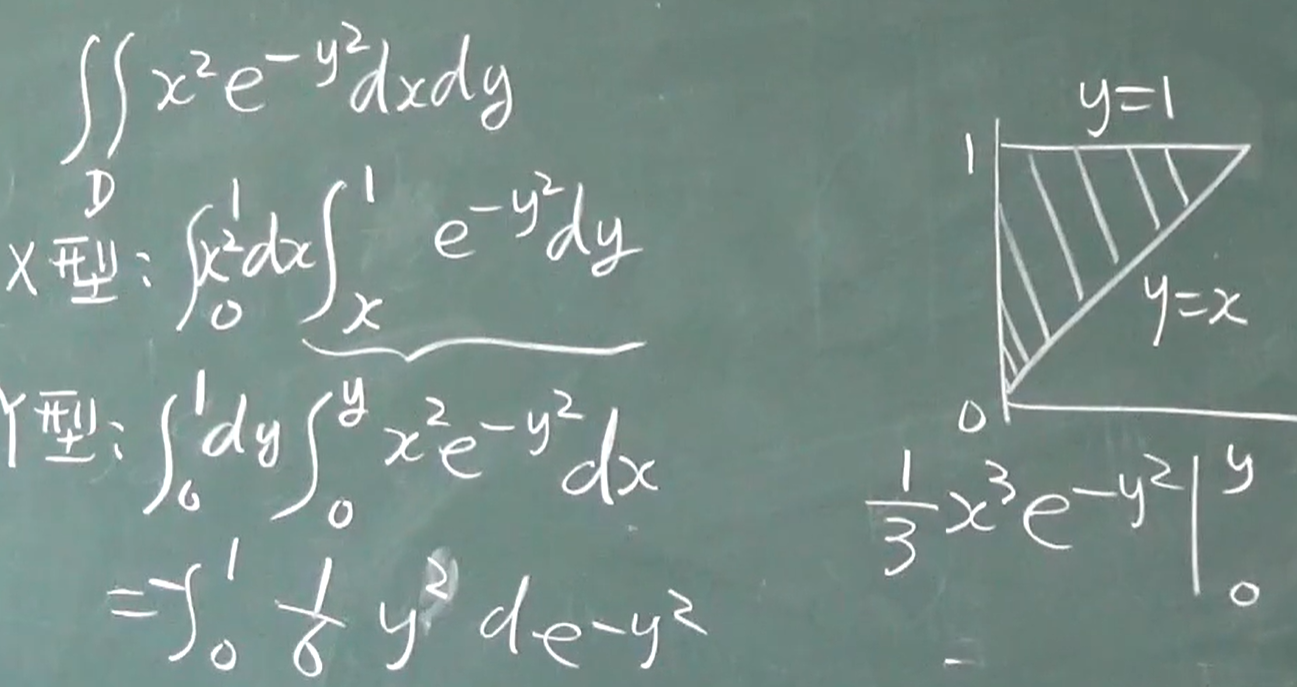 ∬_D x²e^{-y²}dxdy
X型: ∫_0^1 x²dx ∫_x^1 e^{-y²}dy
Y型: ∫_0^1 dy ∫_0^y x²e^{-y²}dx
=-∫_0^1 1/6 y² de^{-y²}
y=1
1
y=x
0
1/3 x³e^{-y²}|_0^y